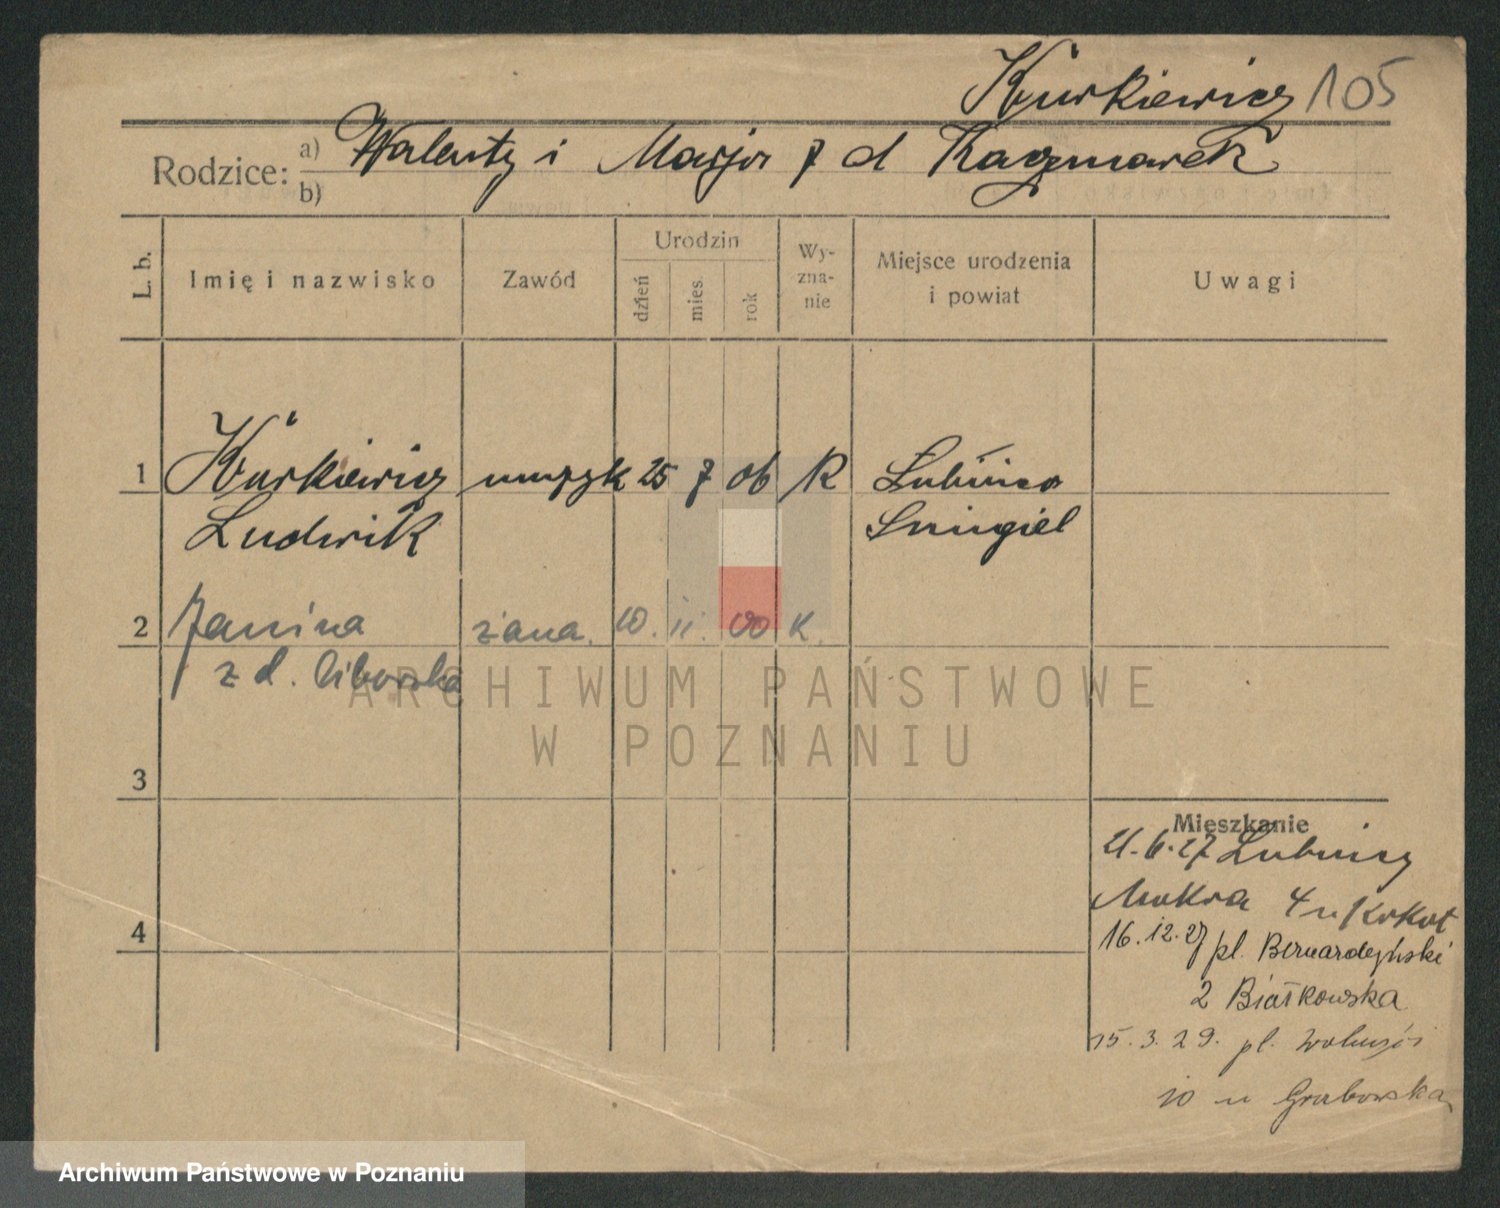 Kurkiewicz 105
Rodzice: a) Walenty i Marja z d Kaczmarek
b)
L. b. Imię i nazwisko Zawód Urodzin dzień mies. rok Wy-zna-nie Miejsce urodzenia i powiat Uwagi
1 Kurkiewicz muzyk 25 7 06 K Lubnica
Ludwik Smigiel
2 Janina żona. 10. 11. 00 K.
z d. Ciborska
3
4
Mieszkanie
21.6.27 Lubnicy
Mokra 4 u Kokot
16.12.27 pl. Bernardyński
2 Białkowska
15.3.29. pl. Wolności
10 u Grabowska
ARCHIWUM PAŃSTWOWE
W POZNANIU
Archiwum Państwowe w Poznaniu